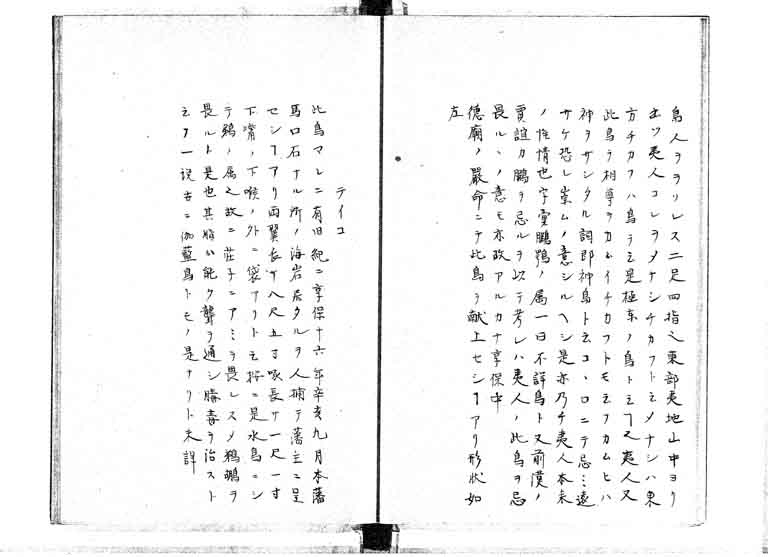 鳥人ヲヲリレス二足四指之東部夷地山中ヨリ
出ツ夷人コレヲメナシチカフト云メナシハ東
方チカフハ鳥ヲ云是極東ノ鳥ト云フ又夷人又
此鳥ヲ相尊ヲカムイチカフトモ云フカムヒハ
神ヲサシタル詞即神鳥ト云コヽロニテ忌ミ遠
サケ恐レ崇ムノ意シルヘシ是亦乃チ夷人本来
ノ性情也字彙鵬鴞ノ属一曰不詳鳥ト又前漢ノ
賈誼カ鵬ヲ忌ルヲ以テ考レハ夷人ノ此鳥ヲ忌
畏ルヽノ意モ亦故アルカナ享保中
徳廟ノ嚴命ニテ此鳥ヲ献上セシヿアリ形状如
左
テイコ
此鳥マレニ有旧紀ニ享保十六年辛亥九月本藩
馬口石ナル所ノ海岩居タルヲ人捕テ藩主ニ呈
セシヿアリ両翼長サ八尺五寸啄長サ一尺一寸
下嘴ノ下喉ノ外ニ袋アリト云按ニ是水鳥ニシ
テ鵜ノ属之故ニ荘子ニアミヲ畏レスメ鵜鶘ヲ
畏ルト是也其脂ハ能ク聾ヲ通シ腫毒ヲ治スト
云フ一説古ニ伽藍鳥トモノ是ナリト未詳